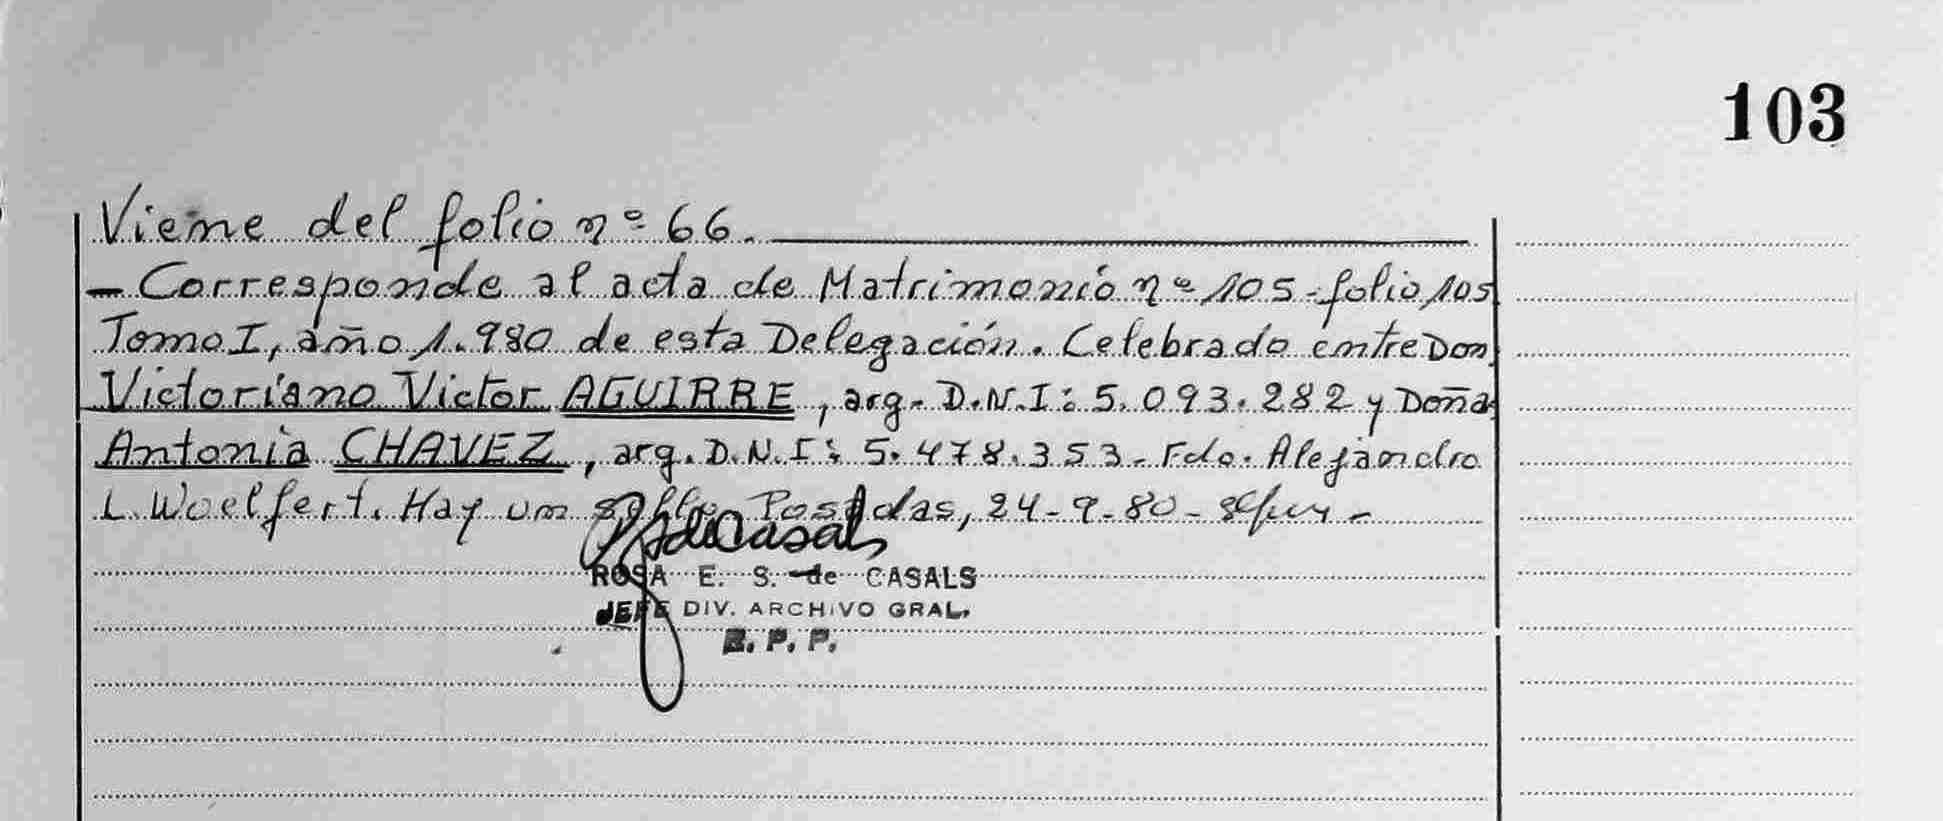 103
Viene del folio nº 66.
- Corresponde al acta de Matrimonio nº 105 - folio 105
Tomo I, año 1.980 de esta Delegación. Celebrado entre Don
Victoriano Victor AGUIRRE, arg. D.N.I: 5.093.282 y Doña
Antonia CHAVEZ, arg. D.N.I: 5.478.353 - Fdo. Alejandro
L. Woelfert. Hay un sello. Posadas, 24-9-80 -
ROSA E. S. de CASALS
JEFE DIV. ARCHIVO GRAL.
R. P. P.